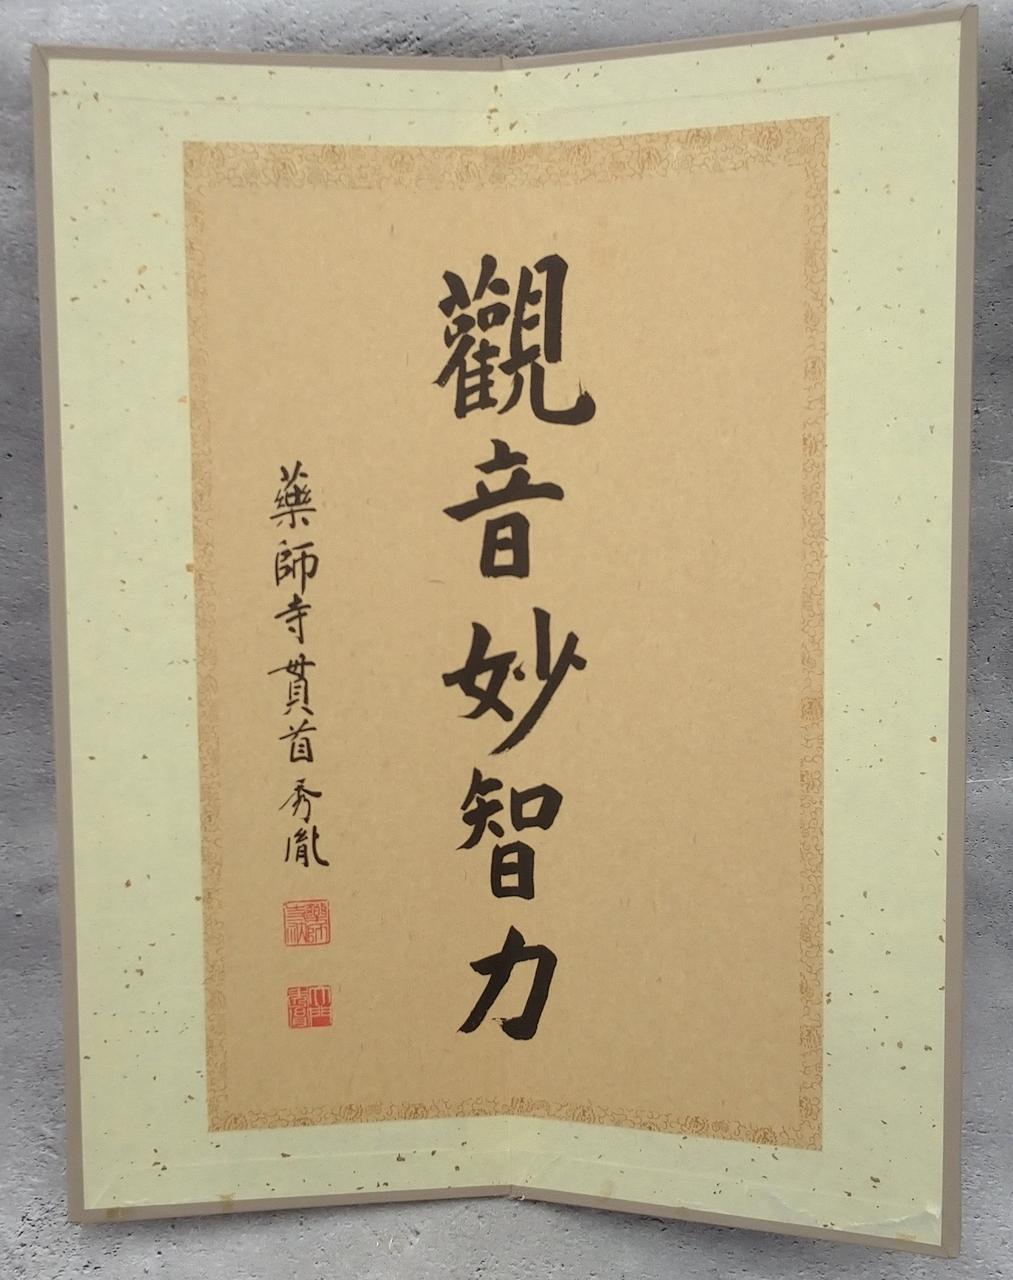 觀音妙智力
藥師寺貫首秀胤